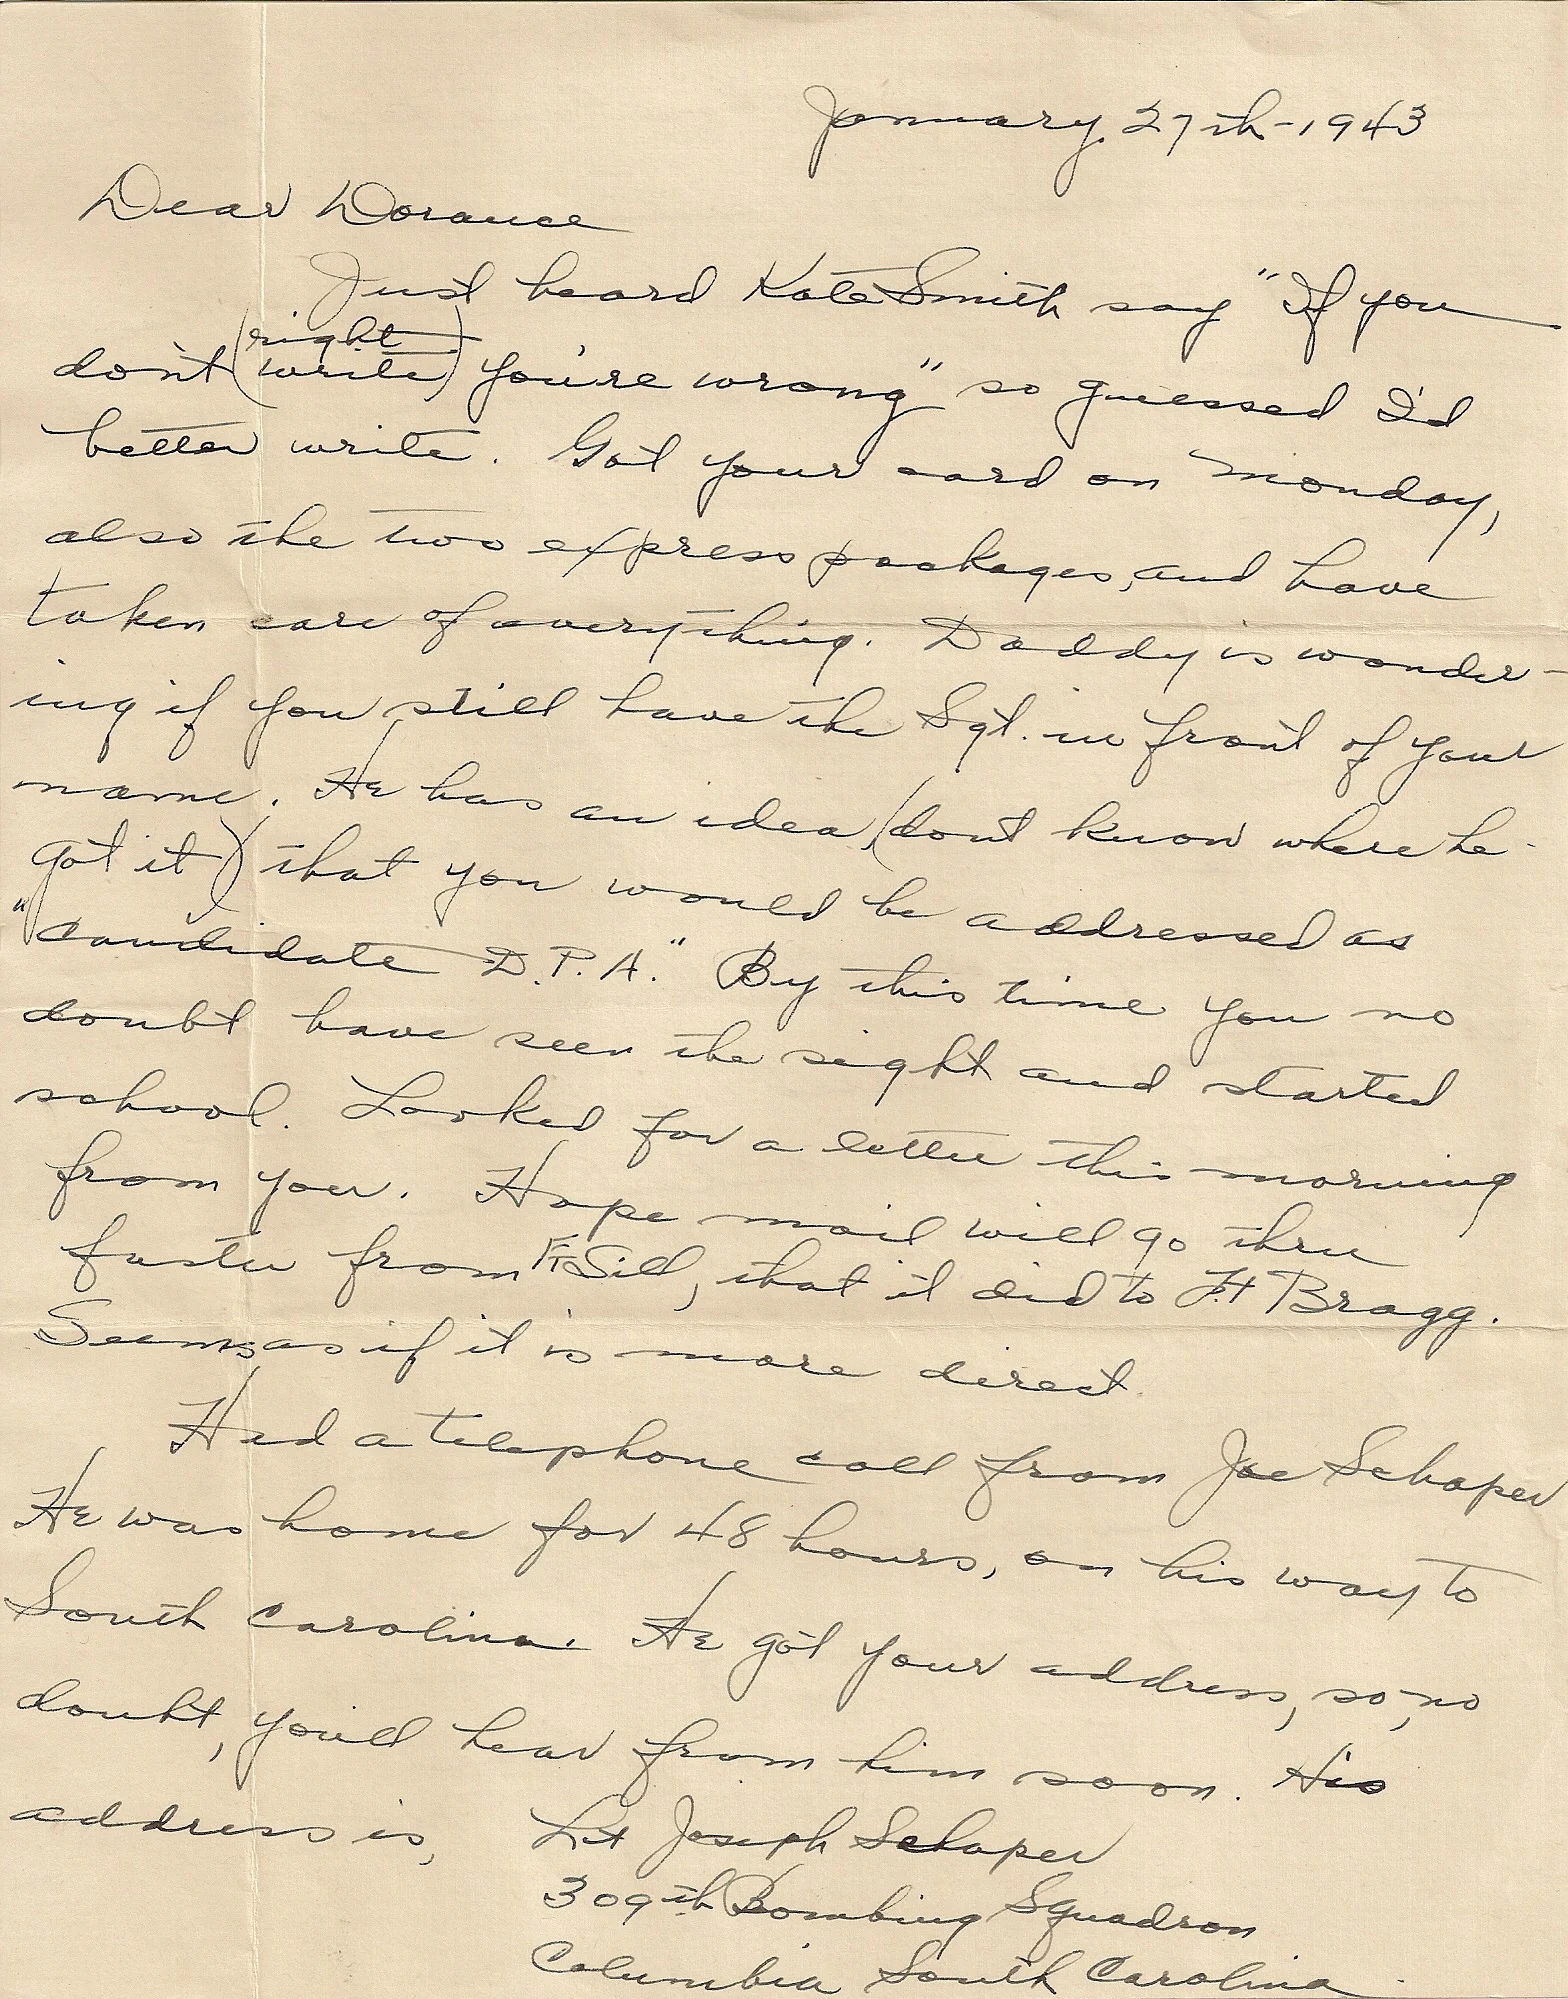 January 27th-1943
Dear Dorance
Just heard Kate Smith say "If you
don't (right
write) you're wrong" so guessed I'd
better write. Got your card on Monday,
also the two express packages, and have
taken care of everything. Daddy is wonder-
ing if you still have the Sgt. in front of your
name. He has an idea (dont know where he
got it) that you would be addressed as
"candidate D.P.A." By this time you no
doubt have seen the sight and started
school. Looked for a letter this morning
from you. Hope mail will go thru
faster from Ft Sill, that it did to Ft Bragg.
Seems as if it is more direct.
Had a telephone call from Joe Schaper
He was home for 48 hours, on his way to
South Carolina. He got your address, so, no
doubt, you'll hear from him soon. His
address is, Lt Joseph Schaper
309th Bombing Squadron
Columbia South Carolina.